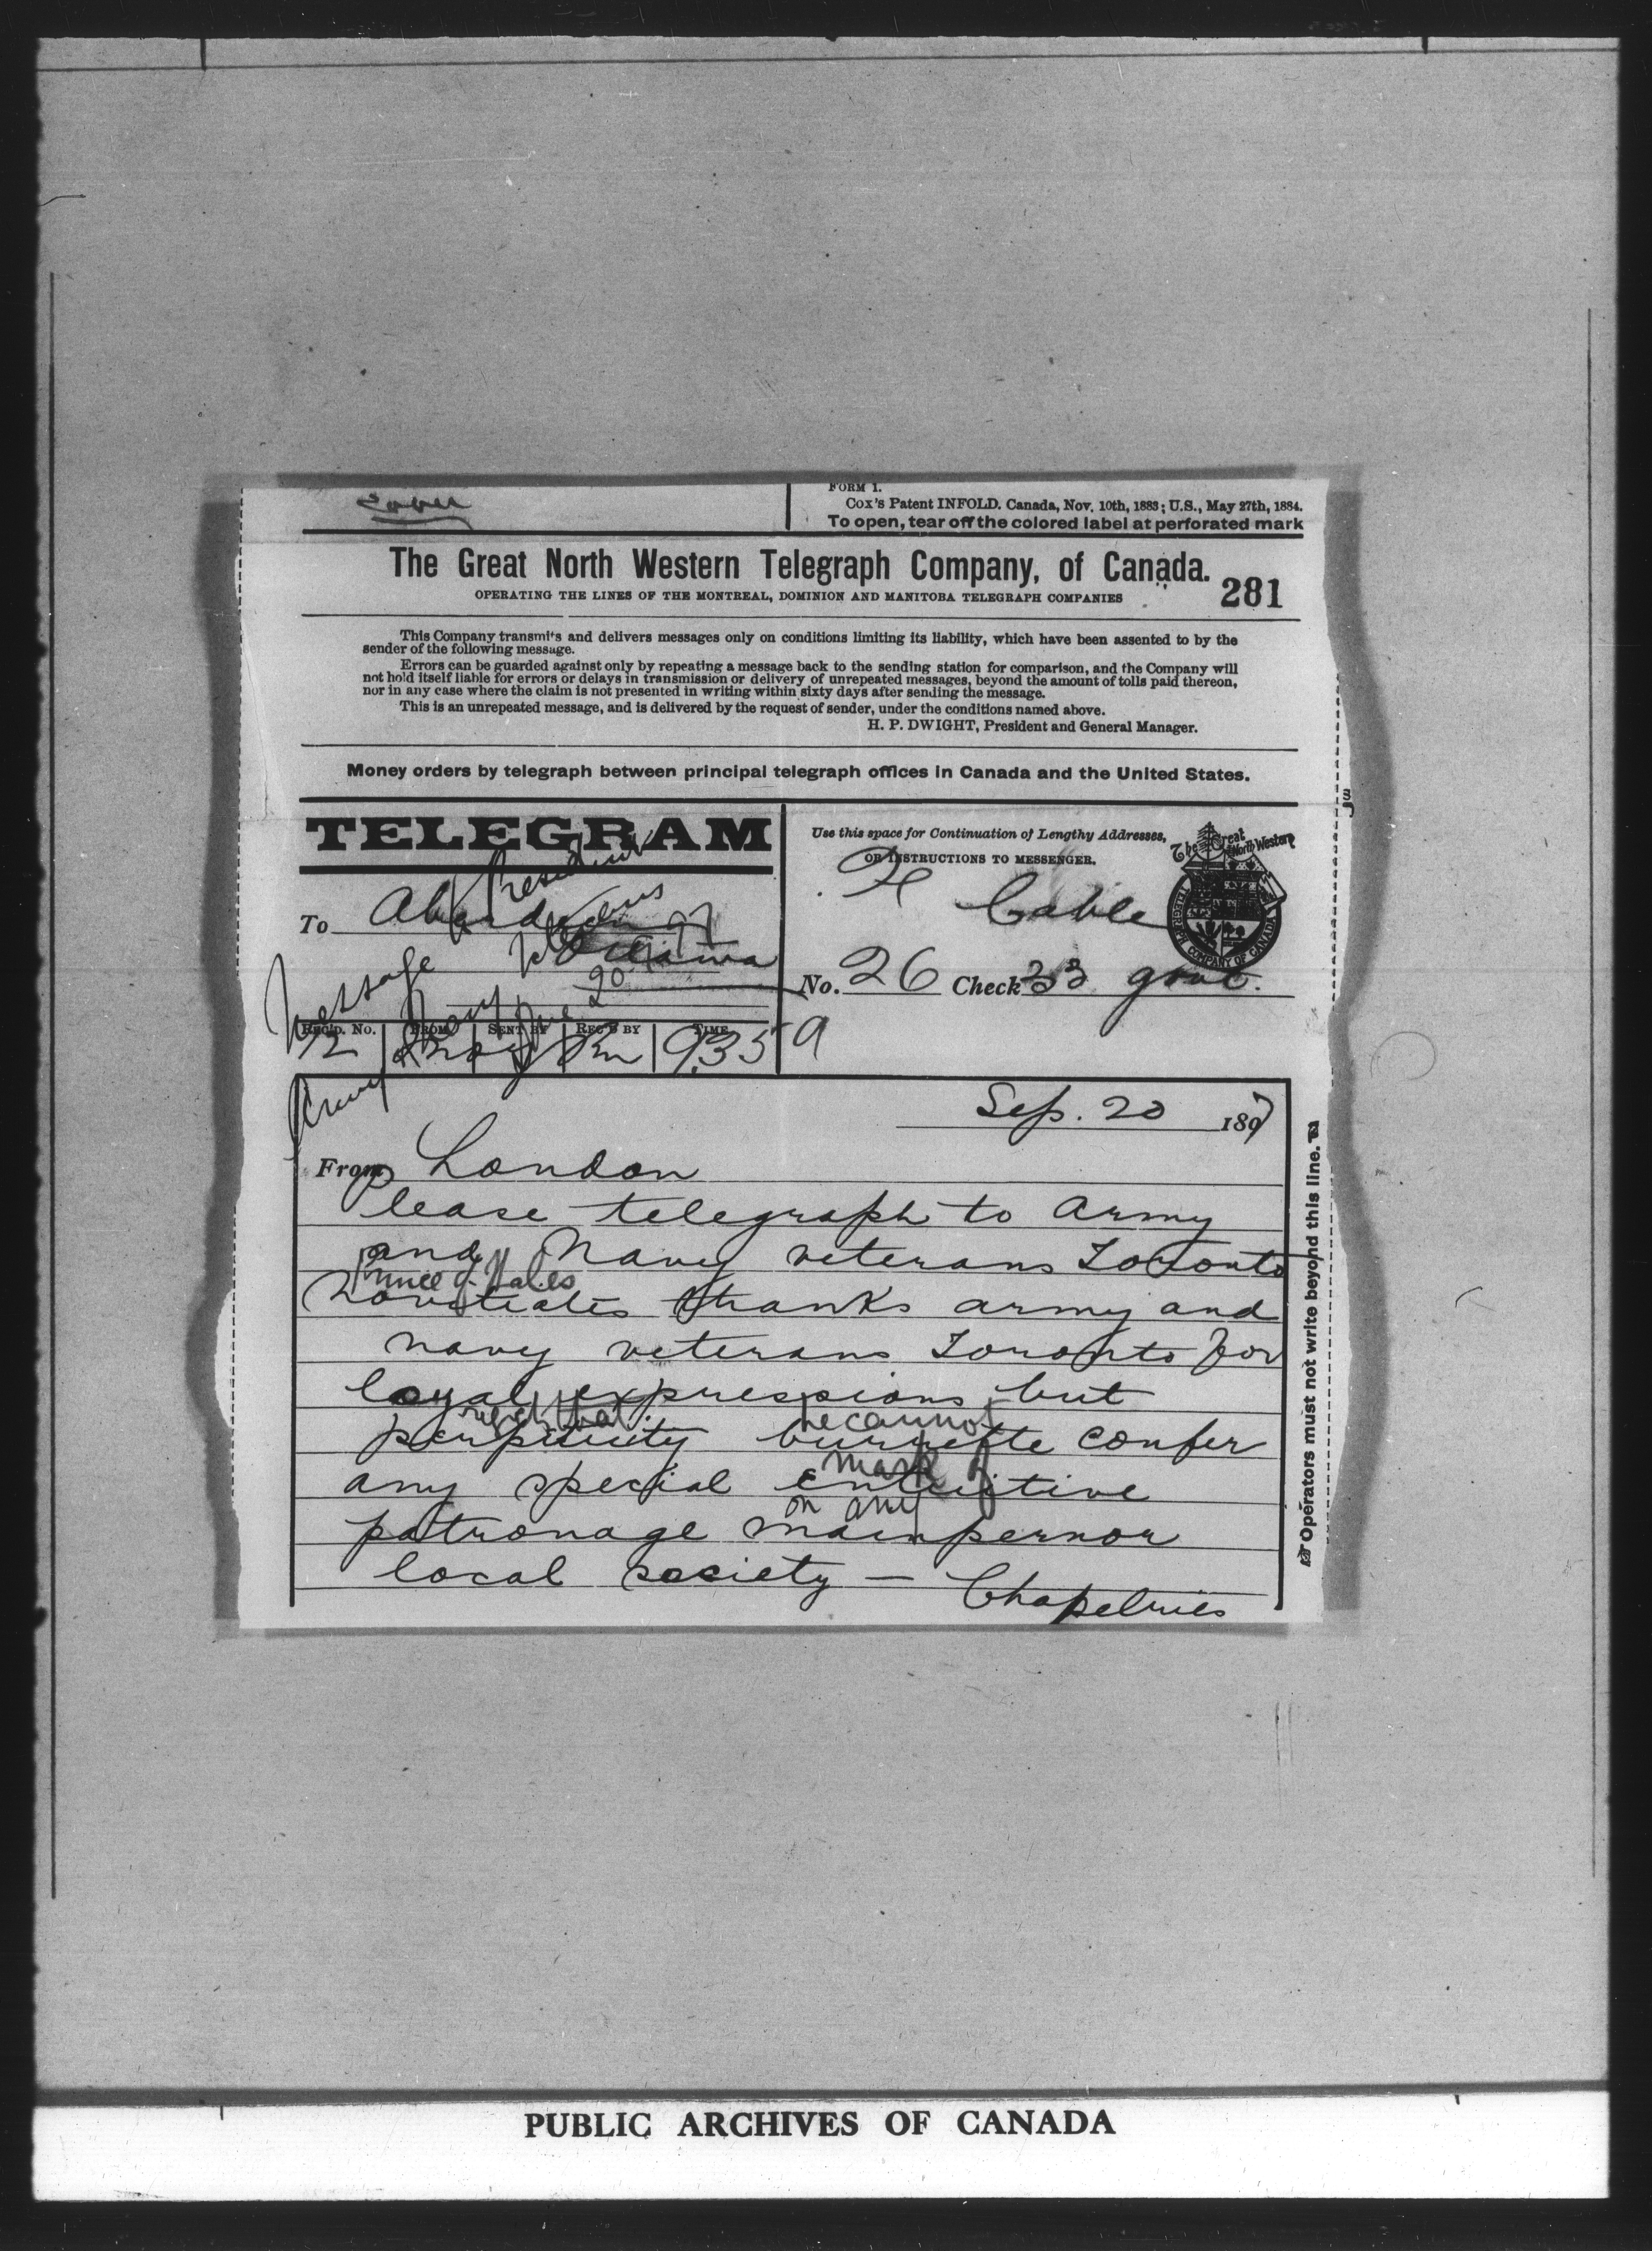 FORM 1.
Cox's Patent INFOLD. Canada, Nov. 10th, 1883; U.S., May 27th, 1884.
To open, tear off the colored label at perforated mark
The Great North Western Telegraph Company, of Canada.
281
OPERATING THE LINES OF THE MONTREAL, DOMINION AND MANITOBA TELEGRAPH COMPANIES
This Company transmits and delivers messages only on conditions limiting its liability, which have been assented to by the
sender of the following message.
Errors can be guarded against only by repeating a message back to the sending station for comparison, and the Company will
not hold itself liable for errors or delays in transmission or delivery of unrepeated messages, beyond the amount of tolls paid thereon,
nor in any case where the claim is not presented in writing within sixty days after sending the message.
This is an unrepeated message, and is delivered by the request of sender, under the conditions named above.
H. P. DWIGHT, President and General Manager.
Money orders by telegraph between principal telegraph offices in Canada and the United States.
TELEGRAM
Use this space for Continuation of Lengthy Addresses,
OR INSTRUCTIONS TO MESSENGER.
The Great North Western
TELEGRAPH COMPANY OF CANADA
President
To Aberdeen
Cable
Ottawa
Message
20
No. 26 Check 33 govt.
REC'D. No. FROM SENT BY REC'D BY TIME
12 9.35 a
Army
Sep. 20 1897
From London
Please telegraph to Army
and Navy veterans Toronto
Prince of Wales
Novitiates thanks army and
navy veterans Toronto for
loyal expressions but
regret that he cannot
perspicuity burnette confer
mark of
any special entuitive
on any
patronage mainpernor
local society — Chapelries
Operators must not write beyond this line.
PUBLIC ARCHIVES OF CANADA